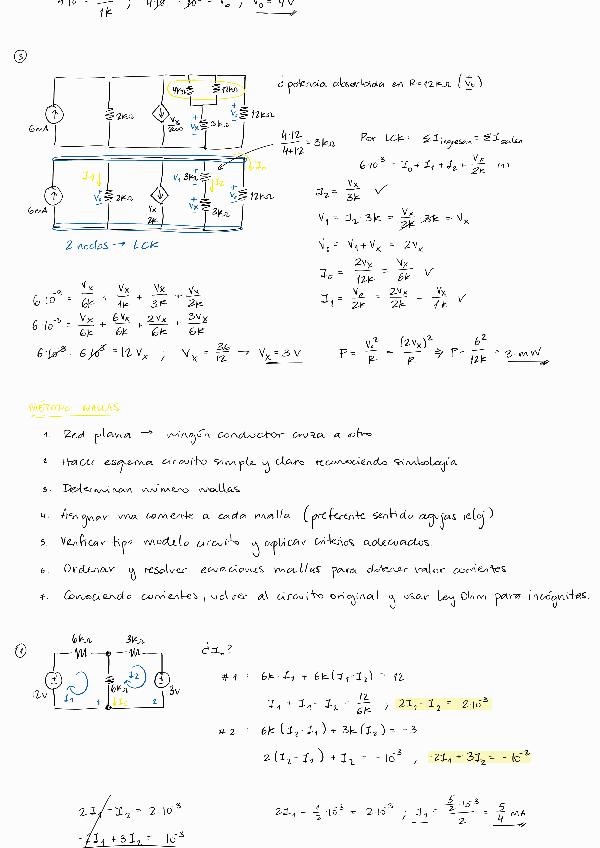 1k
V₀ = 4V
③
¿potencia absorbida en R=12kΩ (V₀)
4kΩ
12kΩ
6mA
2kΩ
Vx
3kΩ
12kΩ
4·12/4+12 = 3kΩ
Por LCK: ΣIingresan = ΣIsalen
6·10⁻³ = I₀ + I₁ + I₂ + Vx/2k
I₂ = Vx/3k ✓
V₁ = I₂·3k = Vx/3k·3k = Vx
V₀ = V₁ + Vx = 2Vx
I₀ = 2Vx/12k = Vx/6k ✓
I₁ = V₀/2k = 2Vx/2k = Vx/1k ✓
I₁
V₁ 3kΩ
I₂
I₀
6mA
V₀
2kΩ
Vx/2k
Vx
3kΩ
12kΩ
2 nodos → LCK
6·10⁻³ = Vx/6k + Vx/1k + Vx/3k + Vx/2k
6·10⁻³ = Vx/6k + 6Vx/6k + 2Vx/6k + 3Vx/6k
6·10⁻³ · 6·10³ = 12Vx ; Vx = 36/12 → Vx = 3V
P = V₀²/R = (2Vx)²/R ⇒ P = 6²/12k = 3mW
MÉTODO MALLAS
1. Red plana → ningún conductor cruza a otro
2. Hacer esquema circuito simple y claro reconociendo simbología
3. Determinan número mallas
4. Asignar una corriente a cada malla (preferente sentido agujas reloj)
5. Verificar tipo modelo circuito y aplicar criterios adecuados
6. Ordenar y resolver ecuaciones mallas para obtener valor corrientes
7. Conociendo corrientes, volver al circuito original y usar Ley Ohm para incógnitas.
①
6kΩ 3kΩ
¿I₀?
2V
I₁
6kΩ
I₂
3V
1
I₀
2
#1: 6k·I₁ + 6k(I₁-I₂) = 12
I₁ + I₁ - I₂ = 12/6k , 2I₁ - I₂ = 2·10⁻³
#2: 6k(I₂-I₁) + 3k(I₂) = -3
2(I₂-I₁) + I₂ = -10⁻³ , -2I₁ + 3I₂ = -10⁻³
2I₁ - I₂ = 2·10⁻³
-2I₁ + 3I₂ = 10⁻³
2I₁ - 1/2·10⁻³ = 2·10⁻³ ; I₁ = 5/2·10⁻³/2 = 5/4 mA